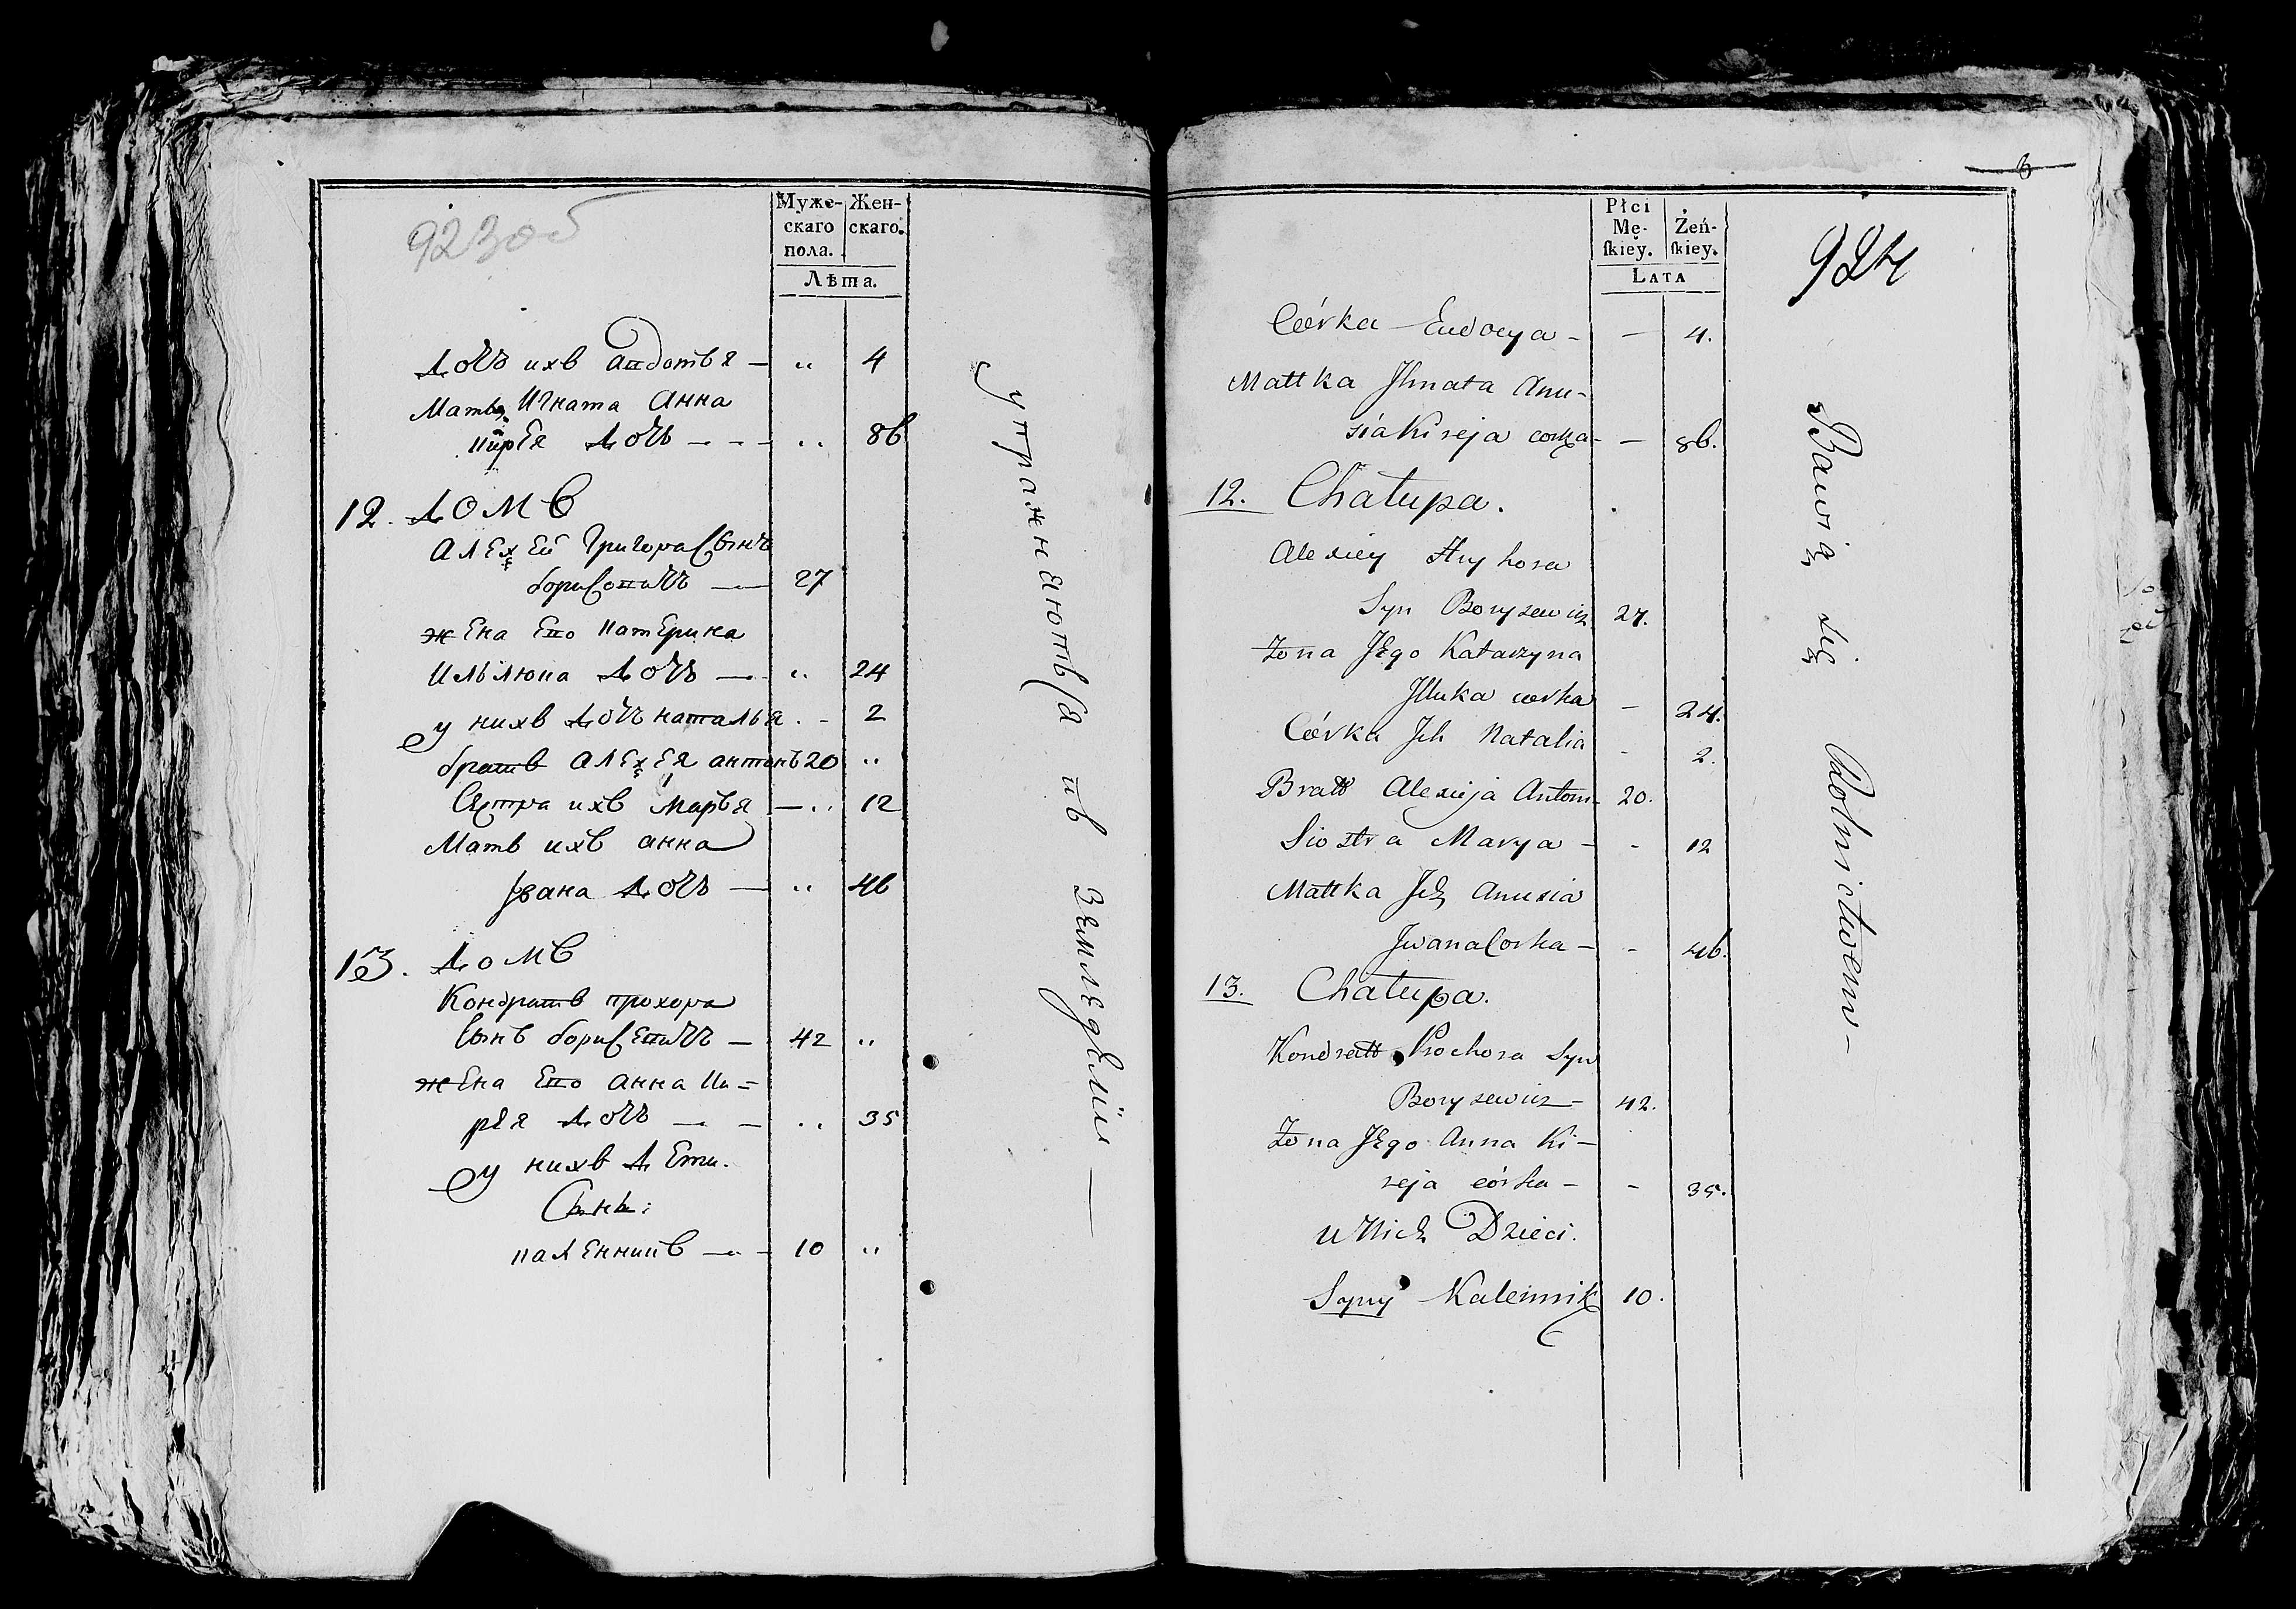 923об
Муже-
скаго
пола.
Жен-
скаго.
Лѣта.
Дочь ихъ Авдотья — „ 4
Мать Игната Анна
Кирея Дочь — - - „ 86
12. Домъ
Алексей Григора Сынъ
Борисовичь — 27
жена Ево Катерина
Ильюка Дочь — „ 24
у нихъ Дочь наталья . - 2
братъ Алексея антонъ 20 „
Сестра ихъ Марья — „ 12
Мать ихъ анна
Ивана Дочь — „ 46
13. Домъ
Кондратъ прохора
Сынъ борисевичь — 42 „
жена Ево анна Ки=
рея Дочь — - „ 35
у нихъ Дети.
Сыны:
каленникъ — - 10 „
упражняются въ земледелии —
6
924
Płci
Mę-
ſkiey.
Żeń-
ſkiey.
LATA
Córka Eudocya - — 4.
Mattka Jhnata Anu-
sia Kireja corka - — 86.
12. Chałupa.
Alexiey Hryhora
Syn Borysewicz 27.
Żona JEgo Katarzyna
Jlluka corka - 24.
Córka Jch Natalia - 2.
Bratt Alexieja Anton - 20.
Siostra Marya - - 12
Mattka Jch Anusia
Jwana Corka - - 46.
13. Chałupa.
Kondratt Prochora Syn
Borysewicz - 42.
Żona JEgo Anna Ki-
reja córka - - 35.
u Nich Dzieci.
Syny Kalennik 10.
Bawią się Rolnictwem -